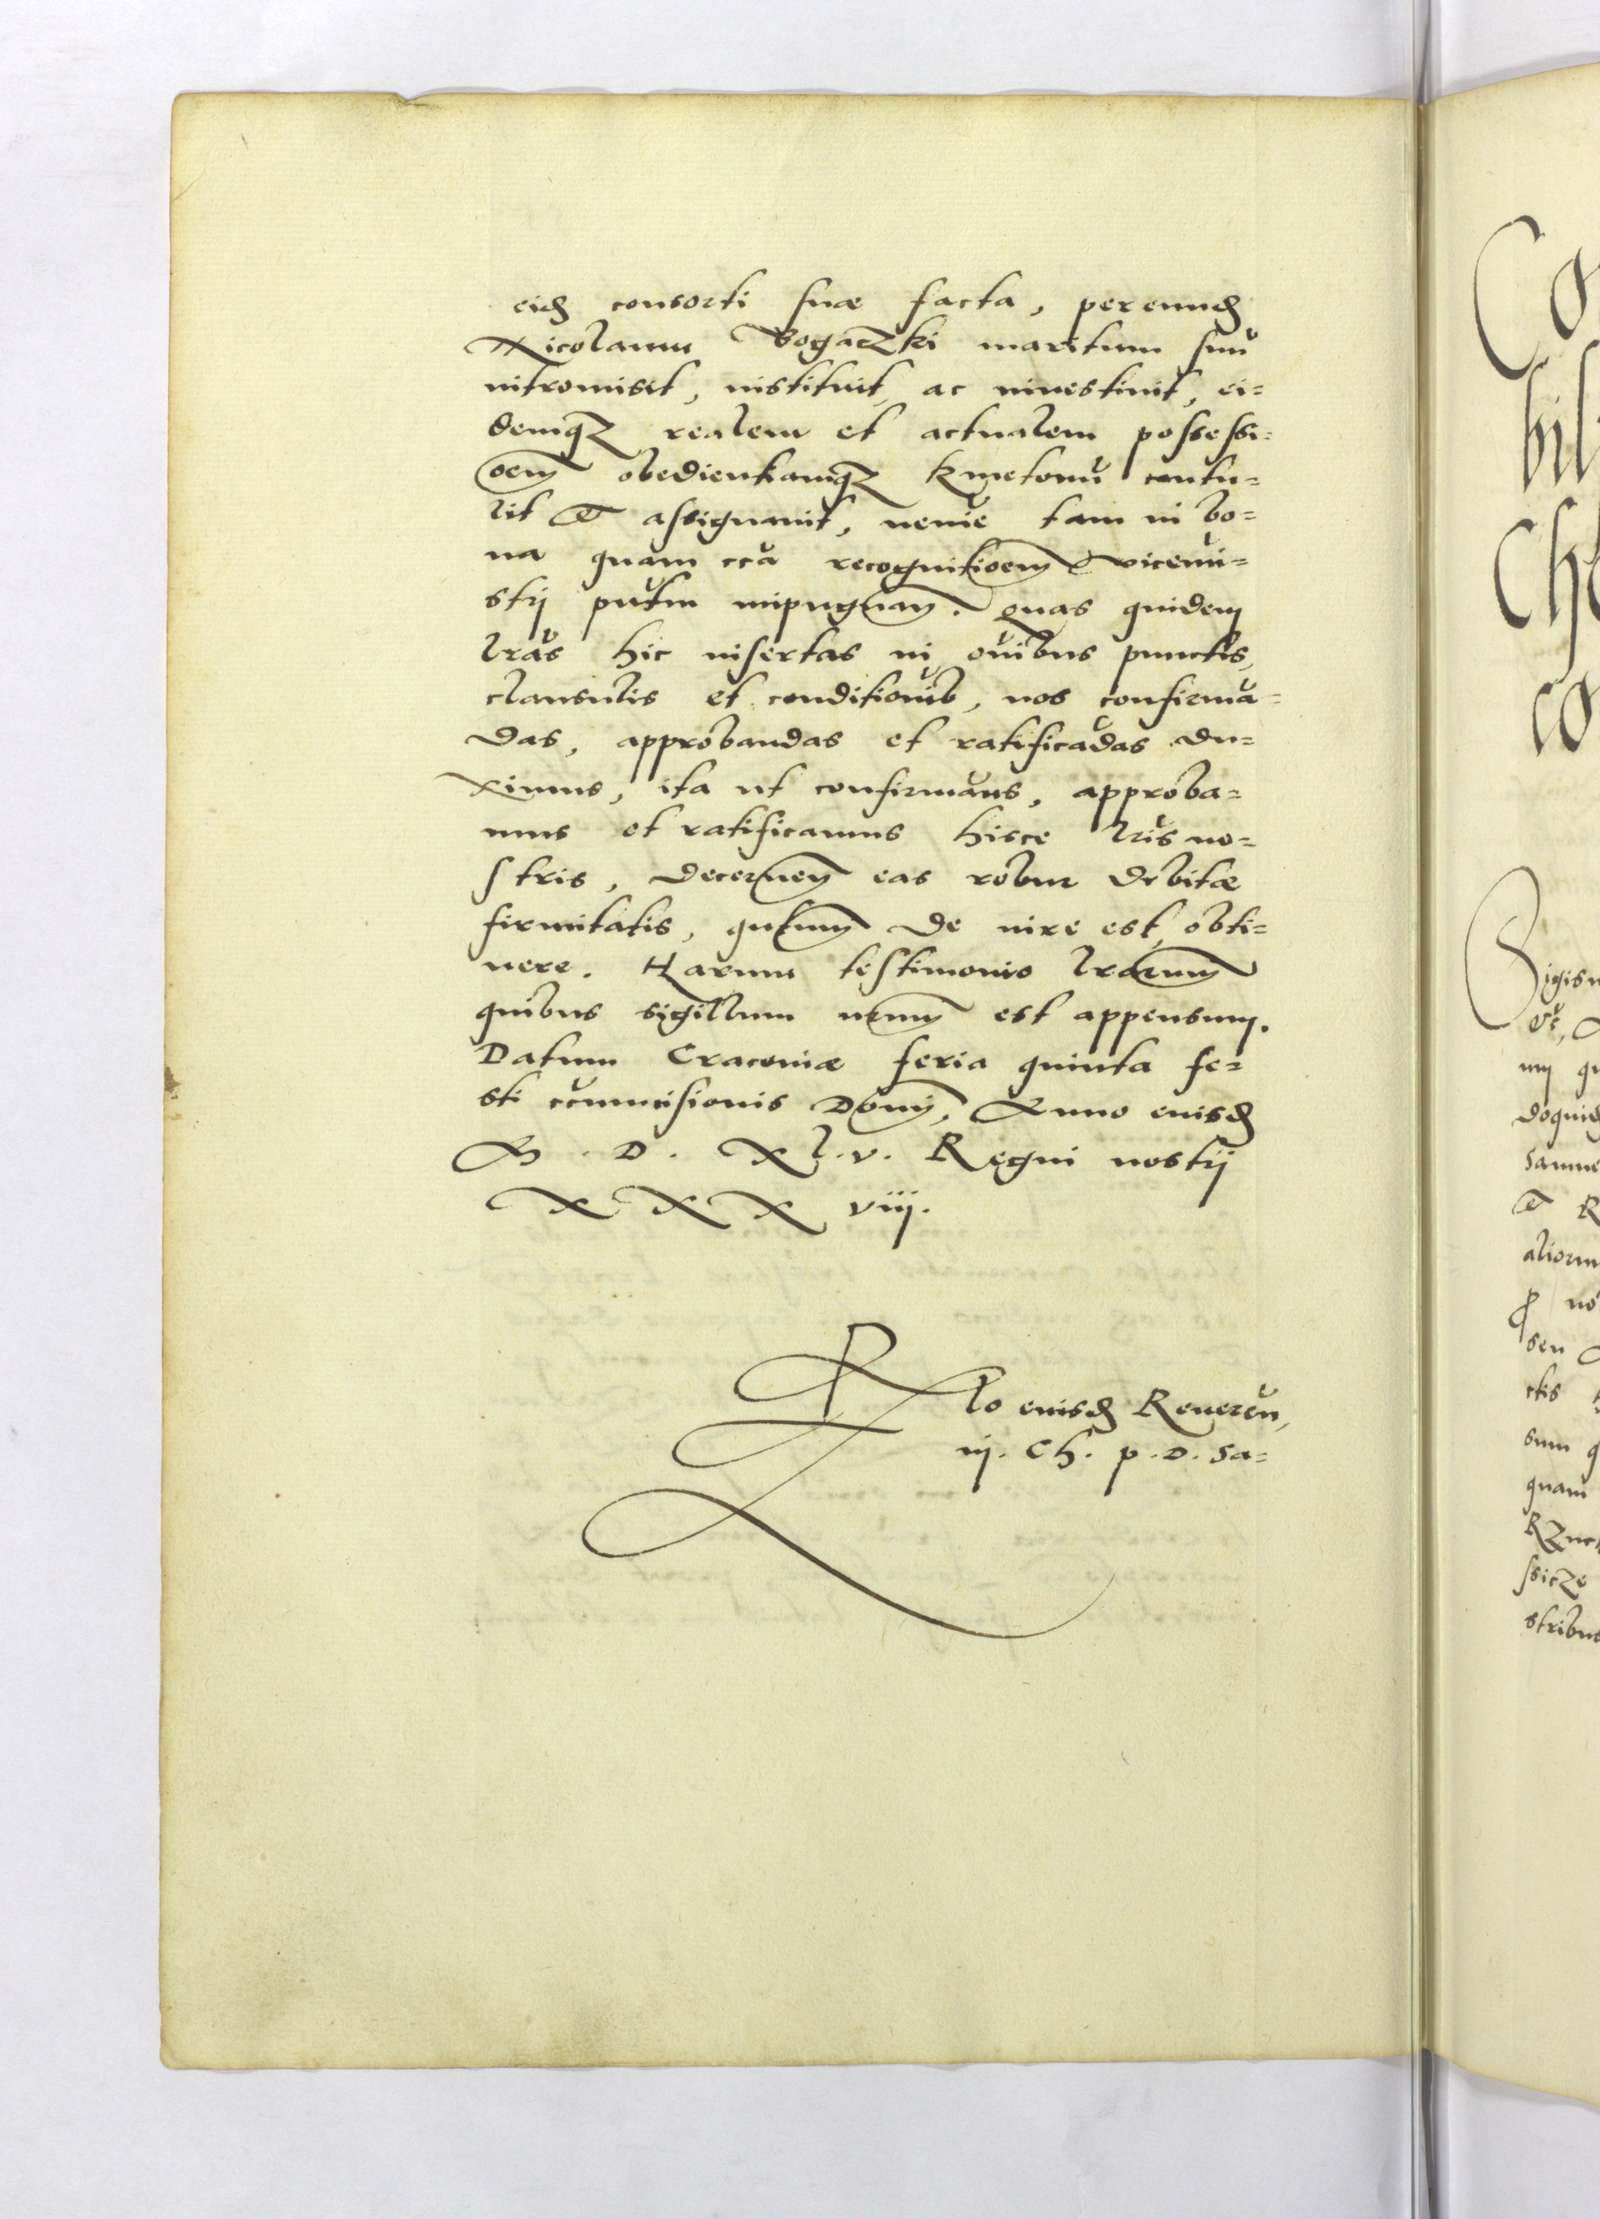 eid consorti suae facta, per eund
Nicolaum Bogaczki maritum suū
intromisit, instituit, ac investivit, ei=
demqz realem et actualem possessi=
oem obedientiamqz kmetonū contu=
lit Et assignavit, nemīe tam in bo=
na quam ccā recognitioem vicemi=
strj pntm impugnan. Quas quidem
lrās hic insertas in oībus punctis,
clausulis et conditionib, nos confirmā=
das, approbandas et ratificādas du=
ximus, ita ut confirmāus, approba=
mus et ratificamus hisce lrīs no=
stris, Decernen eas robur debitæ
firmitatis, qntum de iure est, obti=
nere. Harum testimonio lrarum
quibus sigillum nrum est appensum.
Datum Cracoviæ feria quinta fe=
sti ccūmcisionis Domj, Anno eiusd
M. D. Xl. v. Regni nostrj
X X X viij.
Rlo eiusd Reveren,
ij. Ch. p. D. Sa=
Co
bil
Che
co
Sigis
mj
doquid
samue
Et R
alior
nō
seu
ctis
sum q
quam
ssicze
stribus